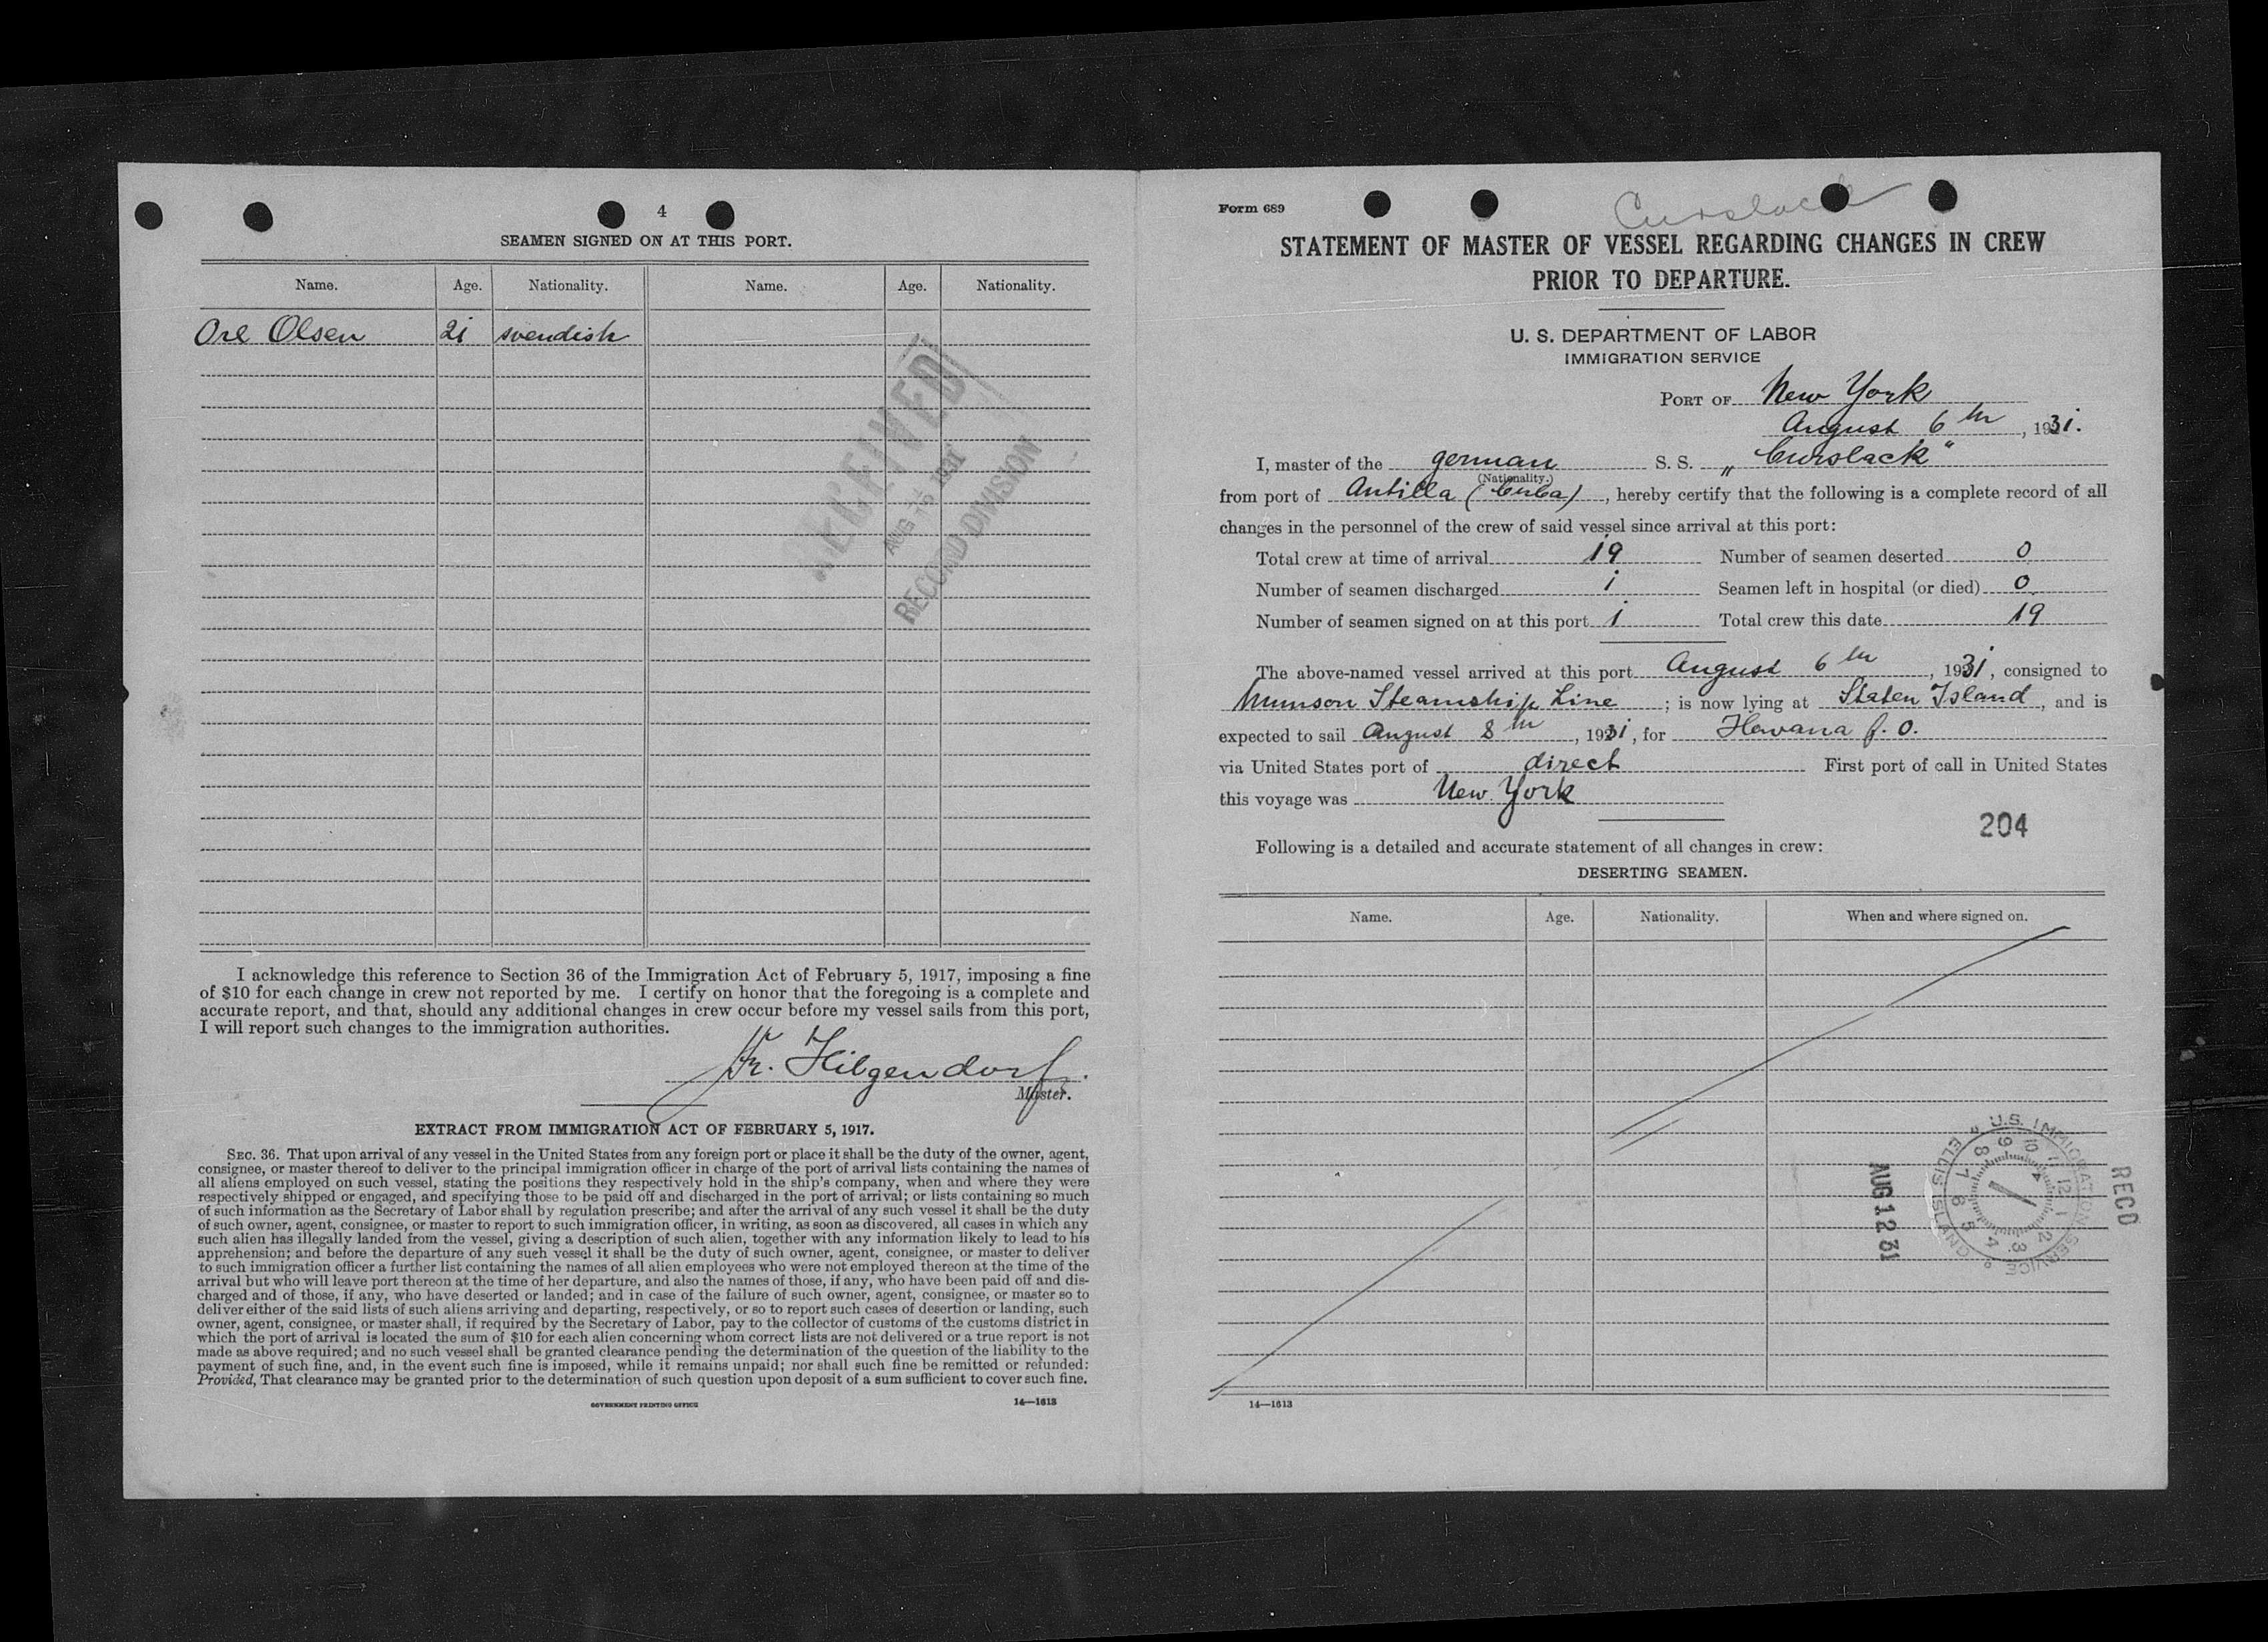 4
SEAMEN SIGNED ON AT THIS PORT.
Name. Age. Nationality. Name. Age. Nationality.
Ove Olsen 21 svendish
RECEIVED
AUG 15 1931
RECORD DIVISION
I acknowledge this reference to Section 36 of the Immigration Act of February 5, 1917, imposing a fine
of $10 for each change in crew not reported by me. I certify on honor that the foregoing is a complete and
accurate report, and that, should any additional changes in crew occur before my vessel sails from this port,
I will report such changes to the immigration authorities.
Fr. Hilgendorf.
Master.
EXTRACT FROM IMMIGRATION ACT OF FEBRUARY 5, 1917.
SEC. 36. That upon arrival of any vessel in the United States from any foreign port or place it shall be the duty of the owner, agent,
consignee, or master thereof to deliver to the principal immigration officer in charge of the port of arrival lists containing the names of
all aliens employed on such vessel, stating the positions they respectively hold in the ship's company, when and where they were
respectively shipped or engaged, and specifying those to be paid off and discharged in the port of arrival; or lists containing so much
of such information as the Secretary of Labor shall by regulation prescribe; and after the arrival of any such vessel it shall be the duty
of such owner, agent, consignee, or master to report to such immigration officer, in writing, as soon as discovered, all cases in which any
such alien has illegally landed from the vessel, giving a description of such alien, together with any information likely to lead to his
apprehension; and before the departure of any such vessel it shall be the duty of such owner, agent, consignee, or master to deliver
to such immigration officer a further list containing the names of all alien employees who were not employed thereon at the time of the
arrival but who will leave port thereon at the time of her departure, and also the names of those, if any, who have been paid off and dis-
charged and of those, if any, who have deserted or landed; and in case of the failure of such owner, agent, consignee, or master so to
deliver either of the said lists of such aliens arriving and departing, respectively, or so to report such cases of desertion or landing, such
owner, agent, consignee, or master shall, if required by the Secretary of Labor, pay to the collector of customs of the customs district in
which the port of arrival is located the sum of $10 for each alien concerning whom correct lists are not delivered or a true report is not
made as above required; and no such vessel shall be granted clearance pending the determination of the question of the liability to the
payment of such fine, and, in the event such fine is imposed, while it remains unpaid; nor shall such fine be remitted or refunded:
Provided, That clearance may be granted prior to the determination of such question upon deposit of a sum sufficient to cover such fine.
GOVERNMENT PRINTING OFFICE 14—1613
Form 689
Curslack
STATEMENT OF MASTER OF VESSEL REGARDING CHANGES IN CREW
PRIOR TO DEPARTURE.
U. S. DEPARTMENT OF LABOR
IMMIGRATION SERVICE
PORT OF New York
August 6th, 1931.
I, master of the german S. S. „Curslack"
(Nationality.)
from port of Antilla (Cuba), hereby certify that the following is a complete record of all
changes in the personnel of the crew of said vessel since arrival at this port:
Total crew at time of arrival 19 Number of seamen deserted 0
Number of seamen discharged 1 Seamen left in hospital (or died) 0
Number of seamen signed on at this port 1 Total crew this date 19
The above-named vessel arrived at this port August 6th, 1931, consigned to
Munson Steamship Line; is now lying at Staten Island, and is
expected to sail August 8th, 1931, for Hawana f. O.
via United States port of direct First port of call in United States
this voyage was New York
204
Following is a detailed and accurate statement of all changes in crew:
DESERTING SEAMEN.
Name. Age. Nationality. When and where signed on.
U.S. IMMIGRATION SERVICE
ELLIS ISLAND
1 2 3 4 5 6 7 8 9 10 11 12
RECD
AUG 12 31
14—1613